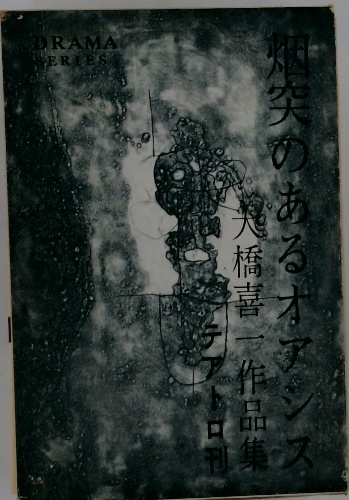 DRAMA
SERIES
烟突のあるオアシス
大橋喜一作品集
テアトロ刊